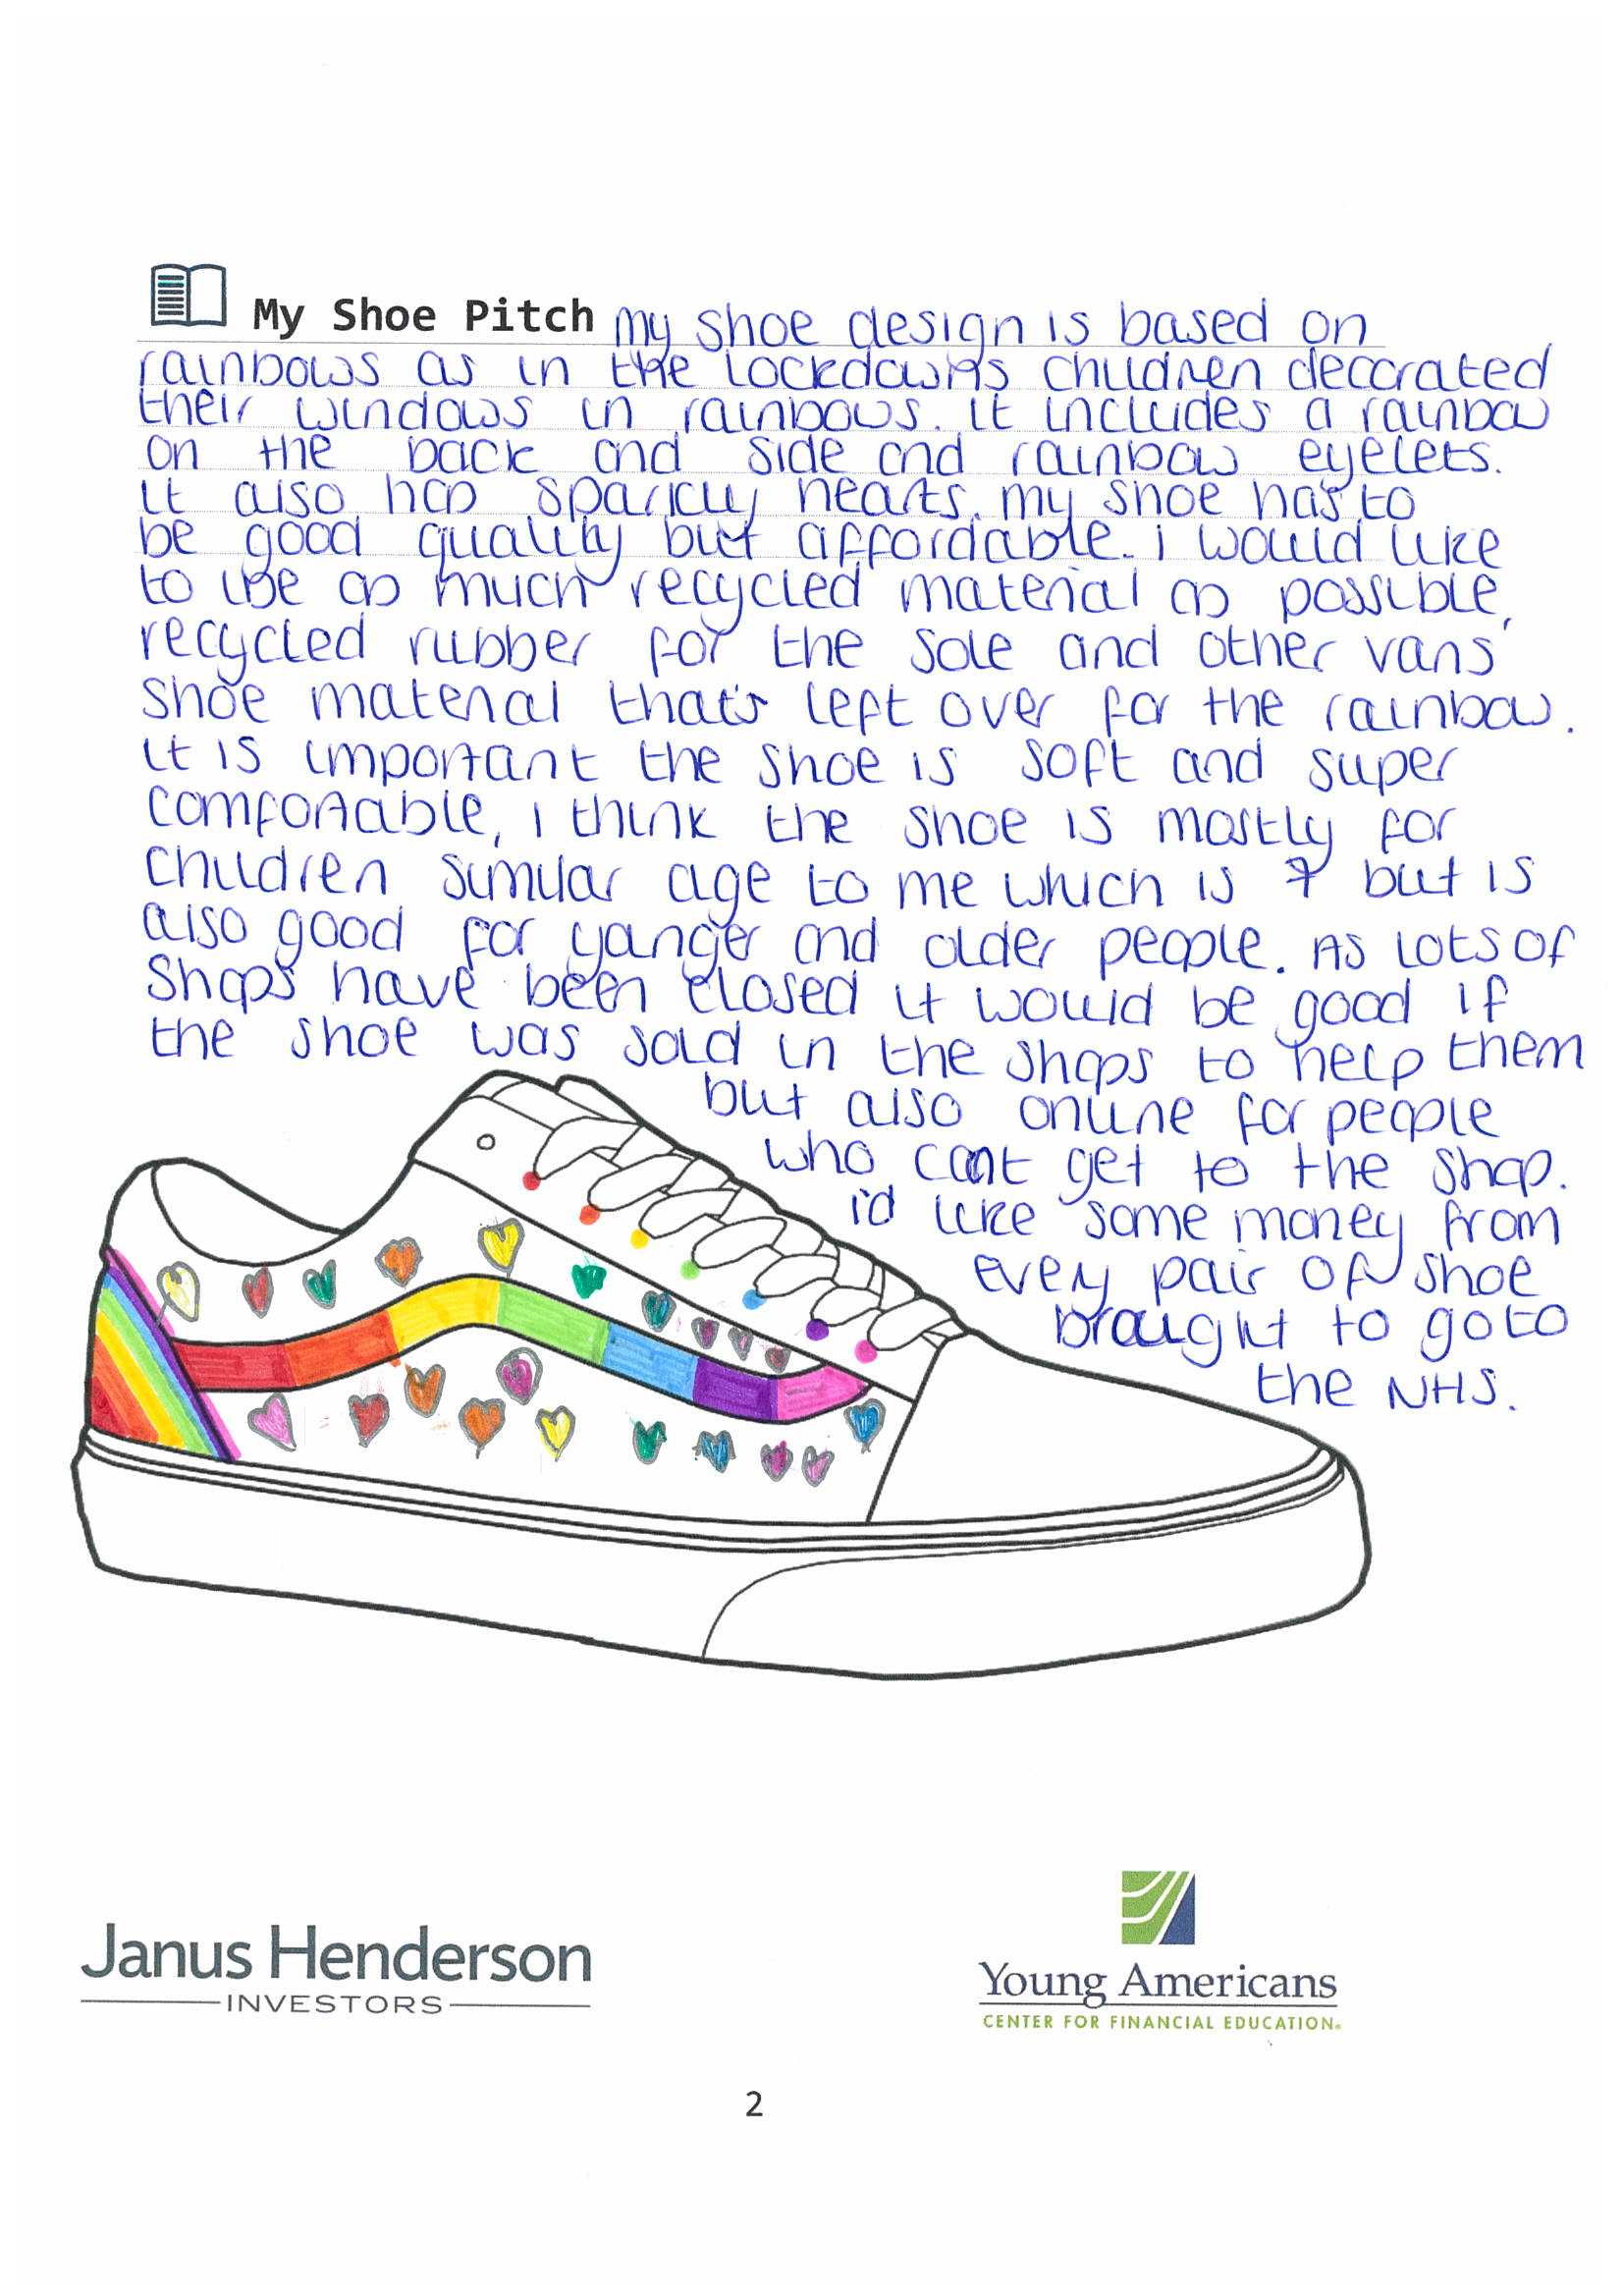 My Shoe Pitch my shoe design is based on
rainbows as in the lockdowns children decorated
their windows in rainbows. it includes a rainbow
on the back and side and rainbow eyelets.
it also has sparkly hearts. my shoe has to
be good quality but affordable. i would like
to use as much recycled material as possible,
recycled rubber for the sole and other vans
shoe material that's left over for the rainbow.
it is important the shoe is soft and super
comfortable, i think the shoe is mostly for
children similar age to me which is 7 but is
also good for yanger and older people. As lots of
shops have been closed it would be good if
the shoe was sold in the shops to help them
but also online for people
who cant get to the shop.
i'd like some money from
every pair of shoe
braught to go to
the NHS.
Janus Henderson
INVESTORS
Young Americans
CENTER FOR FINANCIAL EDUCATION®
2